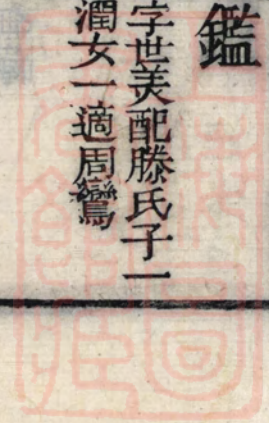 鑑
字世美配滕氏子一
潤女一適周鸞